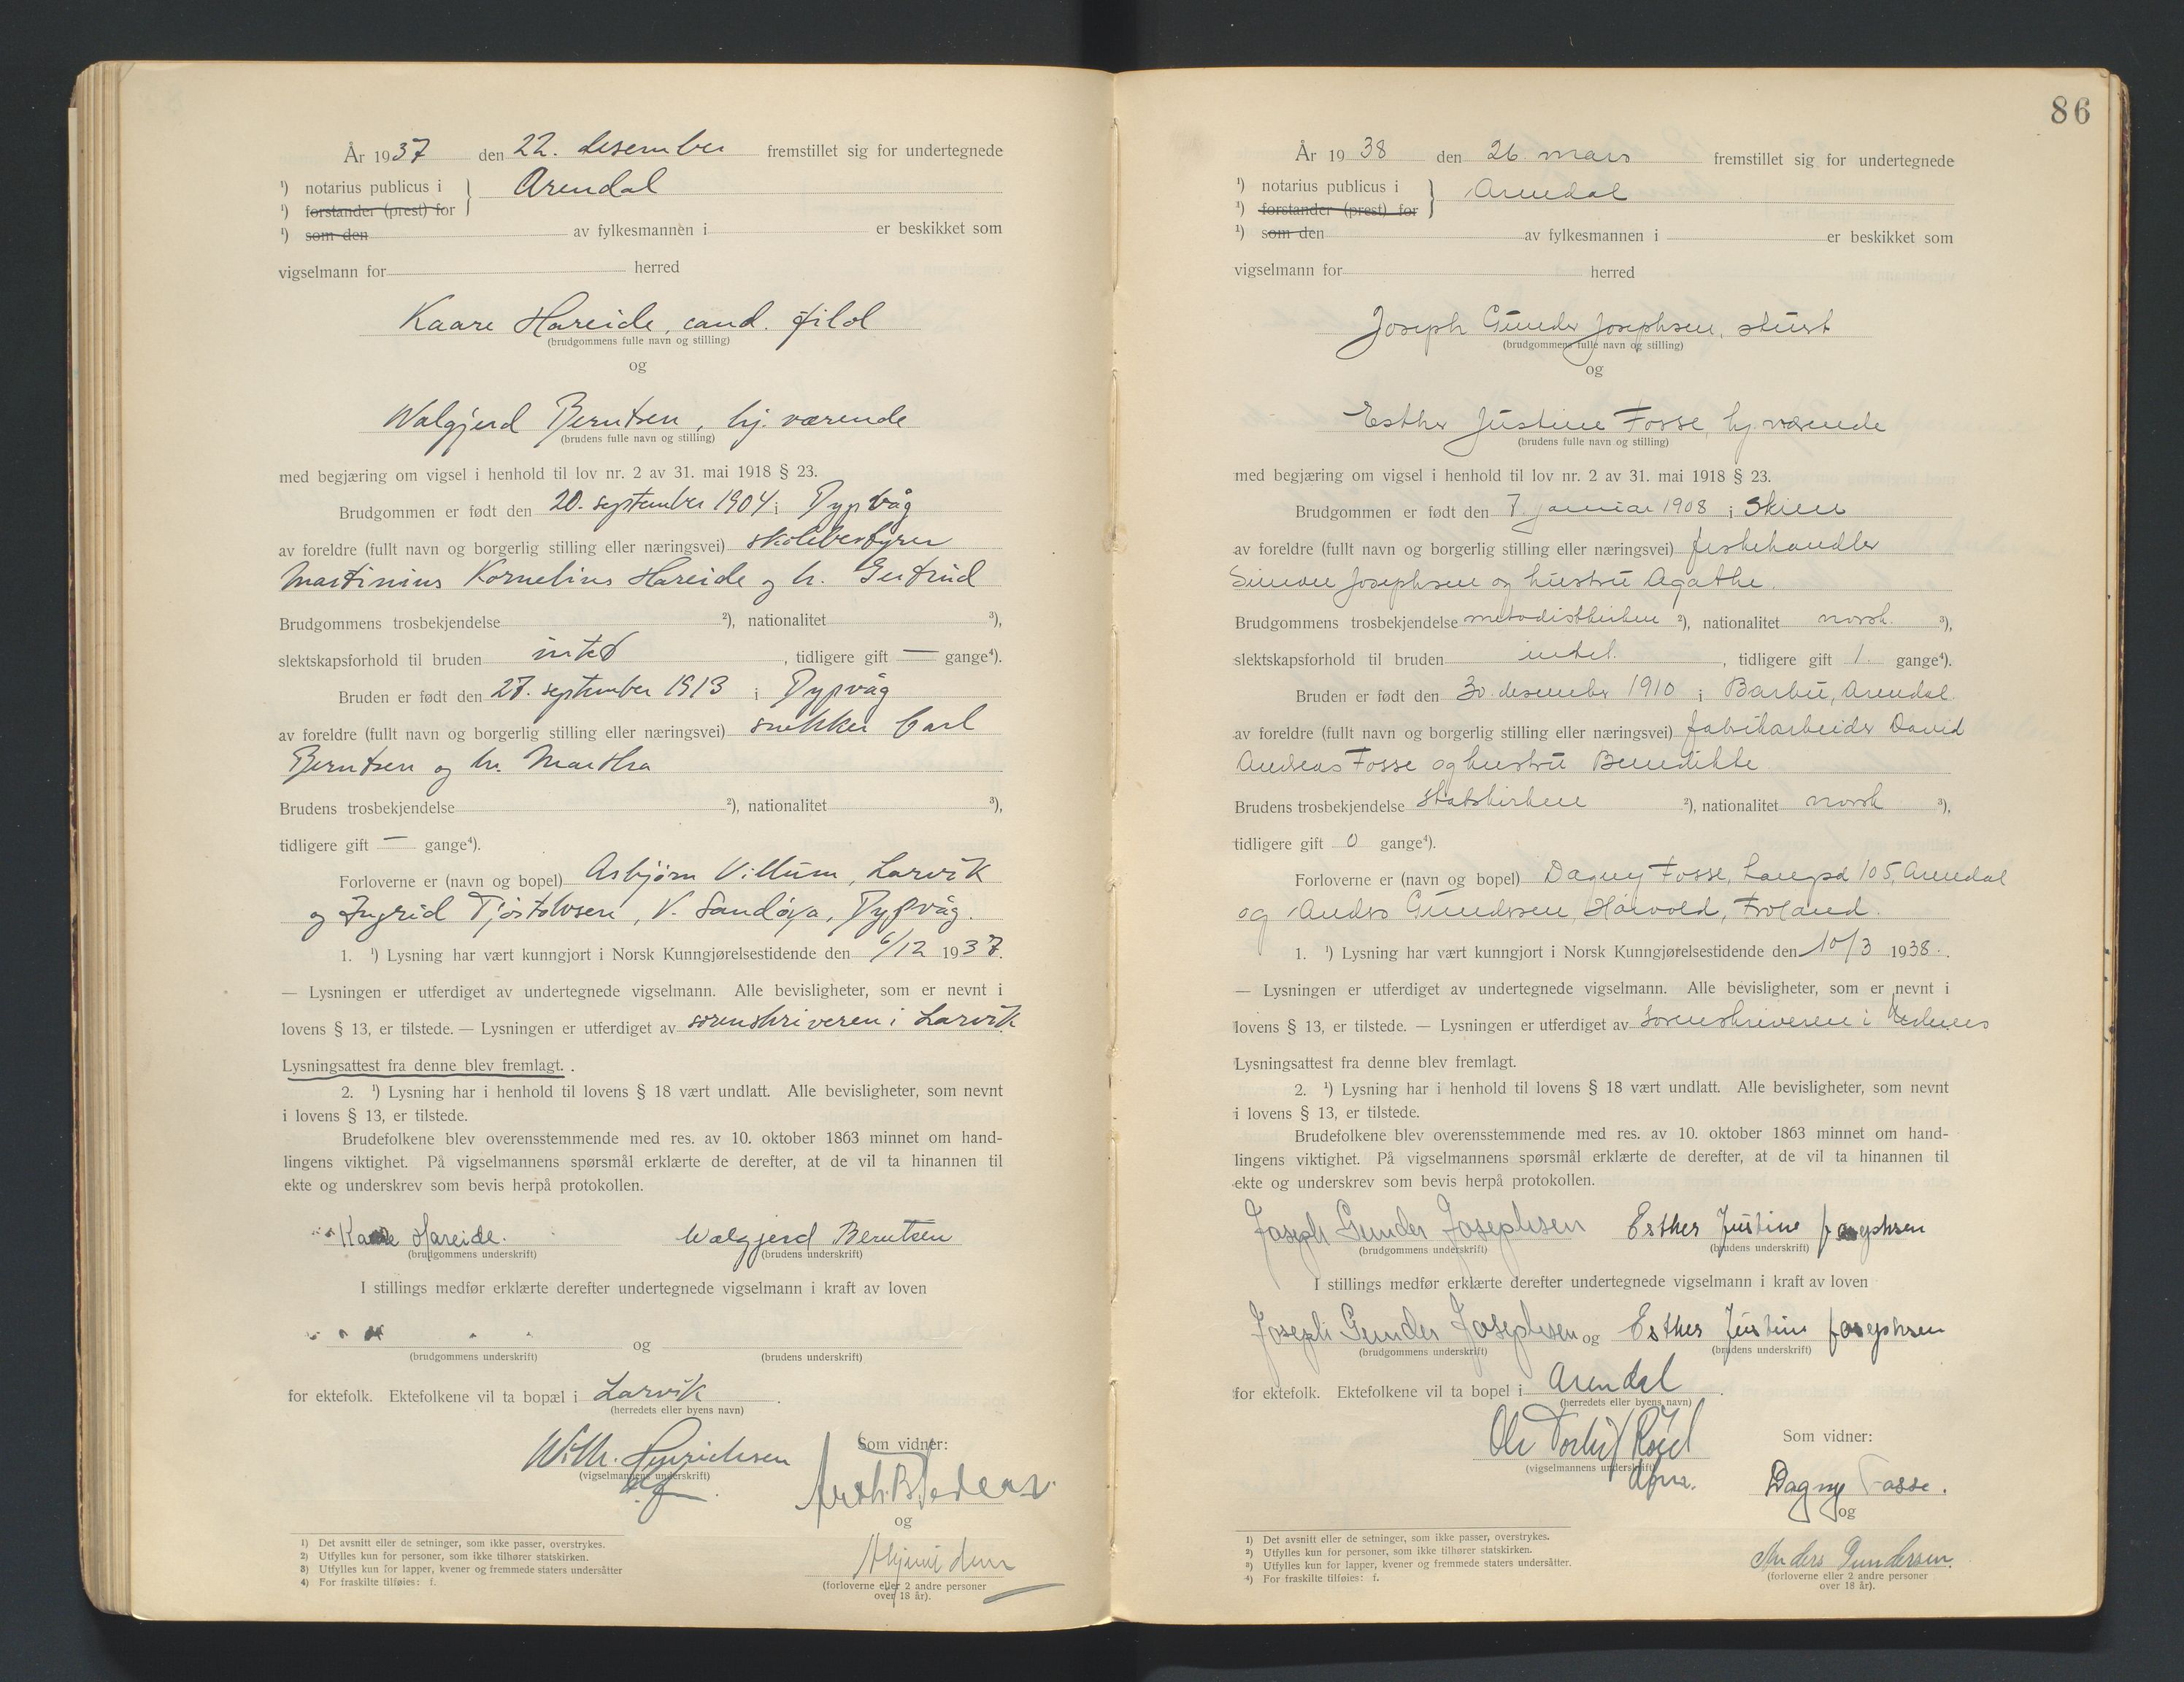 År 1937 den 22. desember fremstillet sig for undertegnede
¹) notarius publicus i } Arendal
¹) forstander (prest) for
¹) som den av fylkesmannen i er beskikket som
vigselmann for herred
Kaare Hareide, cand. filol
(brudgommens fulle navn og stilling)
og
Walgjerd Berntsen, hj. værende
(brudens fulle navn og stilling)
med begjæring om vigsel i henhold til lov nr. 2 av 31. mai 1918 § 23.
Brudgommen er født den 20. september 1904 i Dypvåg
av foreldre (fullt navn og borgerlig stilling eller næringsvei) skolebestyrer
Martinius Kornelius Hareide og h. Gertrud
Brudgommens trosbekjendelse ²), nationalitet ³),
slektskapsforhold til bruden intet , tidligere gift — gange⁴).
Bruden er født den 27. september 1913 i Dypvåg
av foreldre (fullt navn og borgerlig stilling eller næringsvei) snekker Carl
Berntsen og h. Martha
Brudens trosbekjendelse ²), nationalitet ³),
tidligere gift — gange⁴).
Forloverne er (navn og bopel) Asbjørn Villum, Larvik
og Ingrid Tjøstolvsen, V. Sandøya, Dypvåg.
1. ¹) Lysning har vært kunngjort i Norsk Kunngjørelsestidende den 6/12 1937.
— Lysningen er utferdiget av undertegnede vigselmann. Alle bevisligheter, som er nevnt i
lovens § 13, er tilstede. — Lysningen er utferdiget av sorenskriveren i Larvik
Lysningsattest fra denne blev fremlagt. .
2. ¹) Lysning har i henhold til lovens § 18 vært undlatt. Alle bevisligheter, som nevnt
i lovens § 13, er tilstede.
Brudefolkene blev overensstemmende med res. av 10. oktober 1863 minnet om hand-
lingens viktighet. På vigselmannens spørsmål erklærte de derefter, at de vil ta hinannen til
ekte og underskrev som bevis herpå protokollen.
Kaare Hareide. Walgjerd Berntsen
(brudgommens underskrift) (brudens underskrift)
I stillings medfør erklærte derefter undertegnede vigselmann i kraft av loven
og
(brudgommens underskrift) (brudens underskrift)
for ektefolk. Ektefolkene vil ta bopæl i Larvik .
(herredets eller byens navn)
Wilh. Hinrichsen
(vigselmannens underskrift)
Som vidner:
og
(forloverne eller 2 andre personer
over 18 år).
1) Det avsnitt eller de setninger, som ikke passer, overstrykes.
2) Utfylles kun for personer, som ikke tilhører statskirken.
3) Utfylles kun for lapper, kvener og fremmede staters undersåtter
4) For fraskilte tilføies: f.
86
År 1938 den 26. mars fremstillet sig for undertegnede
¹) notarius publicus i } Arendal
¹) forstander (prest) for
¹) som den av fylkesmannen i er beskikket som
vigselmann for herred
Joseph Gunder Josephsen, stuert
(brudgommens fulle navn og stilling)
og
Esther Justine Fosse, hj. værende
(brudens fulle navn og stilling)
med begjæring om vigsel i henhold til lov nr. 2 av 31. mai 1918 § 23.
Brudgommen er født den 7. januar 1908 i Skien
av foreldre (fullt navn og borgerlig stilling eller næringsvei) fiskehandler
Simon Josephsen og hustru Agathe.
Brudgommens trosbekjendelse metodistkirken ²), nationalitet norsk. ³),
slektskapsforhold til bruden intet. , tidligere gift 1. gange⁴).
Bruden er født den 30. desember 1910 i Barbu, Arendal.
av foreldre (fullt navn og borgerlig stilling eller næringsvei) fabrikarbeider David
Andreas Fosse og hustru Benedikte
Brudens trosbekjendelse statskirken ²), nationalitet norsk ³),
tidligere gift 0 gange⁴).
Forloverne er (navn og bopel) Dagny Fosse, Langsd 105, Arendal
og Anders Gundersen, Håvold, Froland.
1. ¹) Lysning har vært kunngjort i Norsk Kunngjørelsestidende den 10/3 1938.
— Lysningen er utferdiget av undertegnede vigselmann. Alle bevisligheter, som er nevnt i
lovens § 13, er tilstede. — Lysningen er utferdiget av sorenskriveren i Nedenes
Lysningsattest fra denne blev fremlagt.
2. ¹) Lysning har i henhold til lovens § 18 vært undlatt. Alle bevisligheter, som nevnt
i lovens § 13, er tilstede.
Brudefolkene blev overensstemmende med res. av 10. oktober 1863 minnet om hand-
lingens viktighet. På vigselmannens spørsmål erklærte de derefter, at de vil ta hinannen til
ekte og underskrev som bevis herpå protokollen.
Joseph Gunder Josephsen Esther Justine Josephsen
(brudgommens underskrift) (brudens underskrift)
I stillings medfør erklærte derefter undertegnede vigselmann i kraft av loven
Joseph Gunder Josephsen og Esther Justine Josephsen
(brudgommens underskrift) (brudens underskrift)
for ektefolk. Ektefolkene vil ta bopel i Arendal .
(herredets eller byens navn)
(vigselmannens underskrift)
Som vidner:
Dagny Fosse.
og
Anders Gundersen.
(forloverne eller 2 andre personer
over 18 år).
1) Det avsnitt eller de setninger, som ikke passer, overstrykes.
2) Utfylles kun for personer, som ikke tilhører statskirken.
3) Utfylles kun for lapper, kvener og fremmede staters undersåtter.
4) For fraskilte tilføies: f.